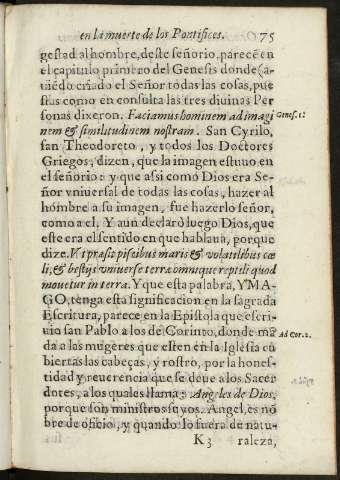 en la muerte de los Pontifices. 75
gestad al hombre, deste señorio, parece en
el capitulo primero del Genesis donde (a-
uiẽdo criado el Señor todas las cosas, pue
stas como en consulta las tres diuinas Per
sonas dixeron. Faciamus hominem ad imagi Genes. 1:
nem & similitudinem nostram. San Cyrilo,
san Theodoreto, y todos los Doctores
Griegos, dizen, que la imagen estuuo en
el señorio: y que assi como Dios era Se-
ñor vniuersal de todas las cosas, hazer al
hombre a su imagen, fue hazerlo señor,
como a el. Y aun declarò luego Dios, que
este era el sentido en que hablaua, porque
dize. Vt præsit piscibus maris & volatilibus cœ
li, & bestijs vniuersæ terræ omnique reptili quod
mouetur in terra. Y que esta palabra, YMA-
GO, tenga esta significacion en la sagrada
Escritura, parece en la Epistola que escri-
uio san Pablo a los de Corinto, donde mã Ad Cor. 2.
da a las mugeres que esten en la Iglesia cu
biertas las cabeças, y rostro, por la hones-
tidad y reuerencia que se deue a los Sacer
dotes, a los quales llama: Angeles de Dios,
porque son ministros suyos. Angel, es nõ
bre de oficio, y quando lo fuera de natu-
K 3 raleza,